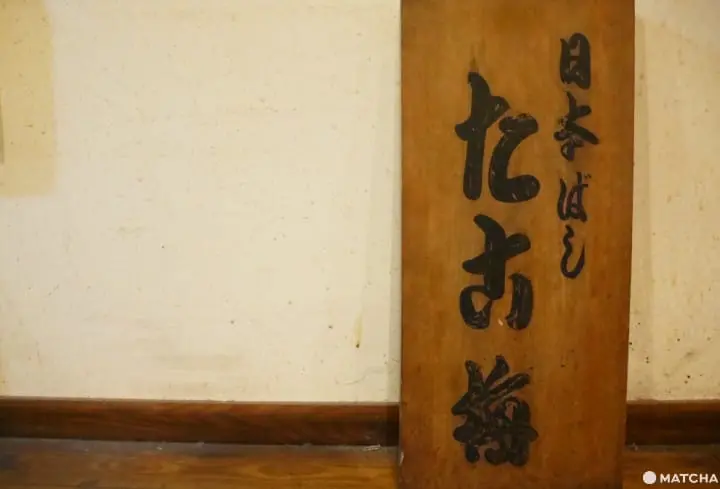 日本ばし
たこ梅
MATCHA